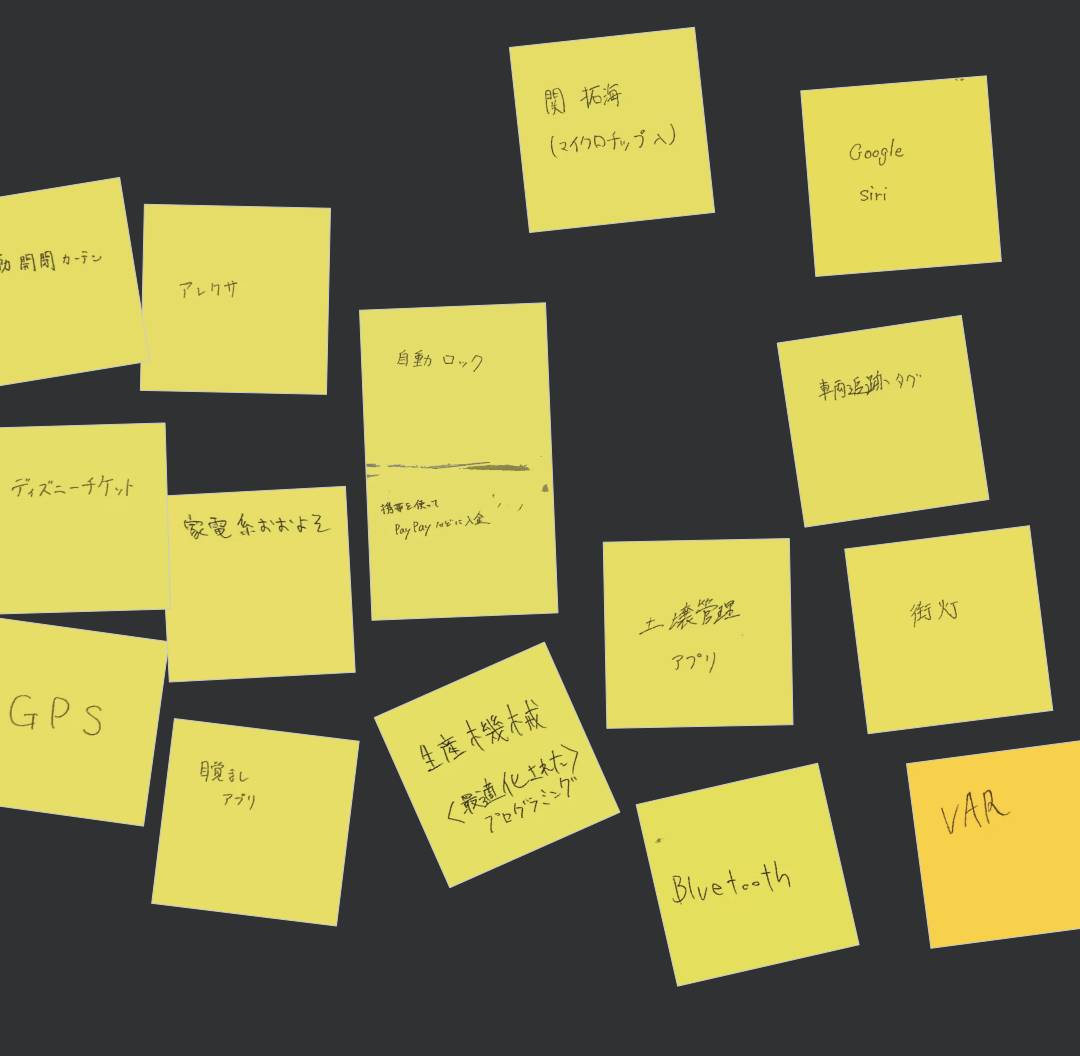 関 拓海
(マイクロチップ入)
Google
siri
動開閉カーテン
アレクサ
自動ロック
携帯を使って
PayPayなどに入金
車両追跡タグ
ディズニーチケット
家電系おおよそ
土壌管理
アプリ
街灯
GPS
目覚まし
アプリ
生産機械
<最適化された>
プログラミング
Bluetooth
VAR